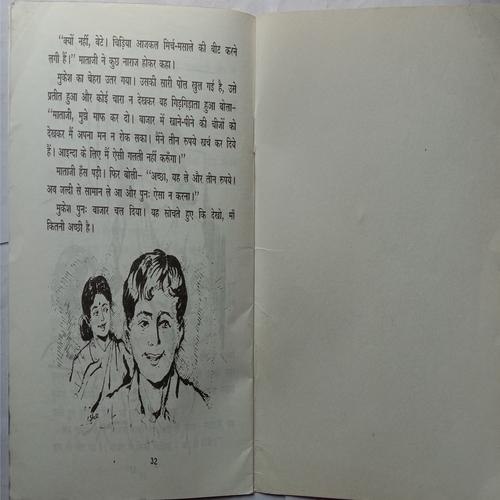 “क्यों नहीं, बेटे। चिड़िया आजकल मिर्च-मसाले की बीट करने
लगी हैं।” माताजी ने कुछ नाराज होकर कहा।
मुकेश का चेहरा उतर गया। उसकी सारी पोल खुल गई है, उसे
प्रतीत हुआ और कोई चारा न देखकर वह गिड़गिड़ाता हुआ बोला–
“माताजी, मुझे माफ कर दो। बाजार में खाने-पीने की चीजों को
देखकर मैं अपना मन न रोक सका। मैंने तीन रुपये खर्च कर दिये
हैं। आइन्दा के लिए मैं ऐसी गलती नहीं करूँगा।”
माताजी हँस पड़ी। फिर बोली– “अच्छा, यह ले और तीन रुपये।
अब जल्दी से सामान ले आ और पुनः ऐसा न करना।”
मुकेश पुनः बाजार चल दिया। यह सोचते हुए कि देखो, माँ
कितनी अच्छी है।
32